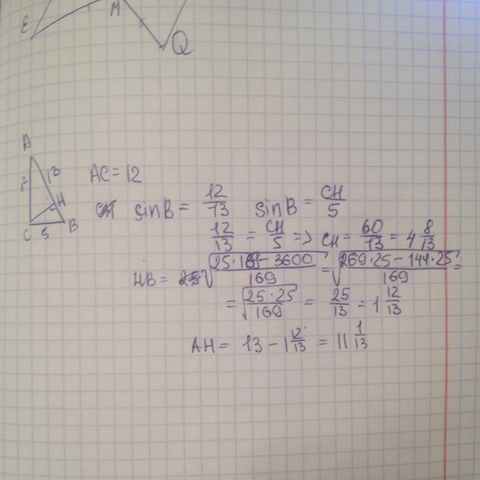 E M Q
A
13
AC = 12
H
C 5 B
sin B = 12/13 sin B = CH/5
12/13 = CH/5 => CH = 60/13 = 4 8/13
HB = √(25·169 − 3600)/169 = √(269·25 − 144·25)/169 =
= √(25·25)/169 = 25/13 = 1 12/13
AH = 13 − 1 12/13 = 11 1/13